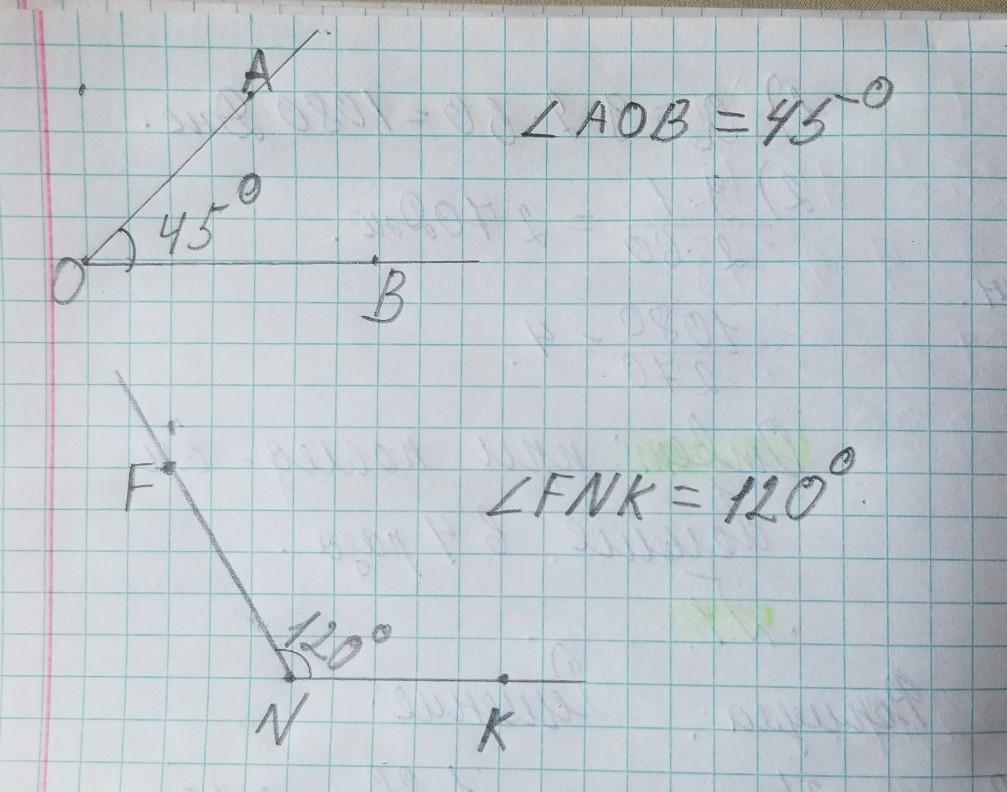 A
∠AOB = 45°
45°
O
B
F
∠FNK = 120°
120°
N
K